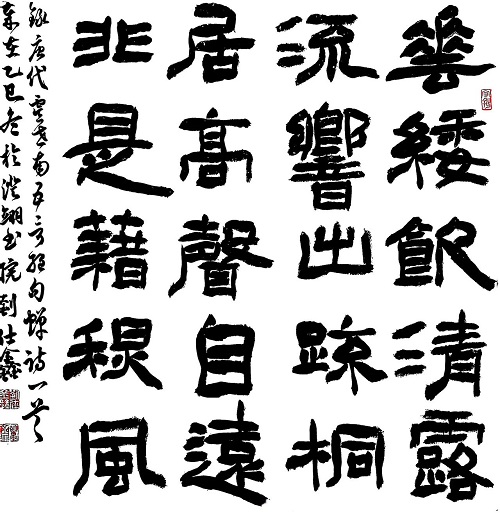 垂緌飲清露
流響出疏桐
居高聲自遠
非是藉秋風
錄唐代虞世南五言絕句蟬詩一首
在乙巳冬於書院劉仕鑫